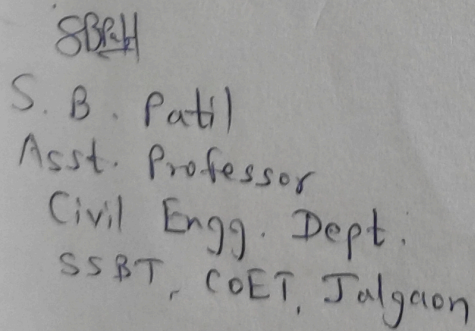 SBPatil
S. B. Patil
Asst. Professor
Civil Engg. Dept.
SSBT, COET, Jalgaon